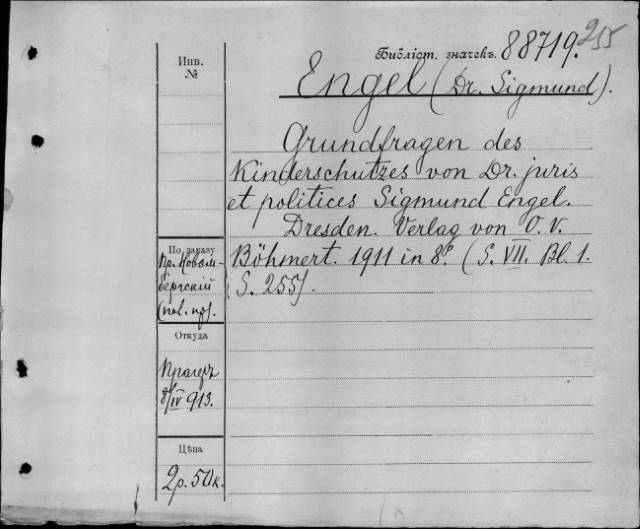 Библіот. значекъ. 88719. 255
Инв.
№
Engel (Dr. Sigmund).
Grundfragen des
Kinderschutzes von Dr. juris
et politices Sigmund Engel.
Dresden. Verlag von O. V.
Böhmert. 1911 in 8º. (S. VII. Bl. 1.
S. 255).
По заказу
Пр. Новом-
бергскій
(пол. пр).
Откуда
Прагеръ
8/IV 913.
Цѣна
2р. 50к.